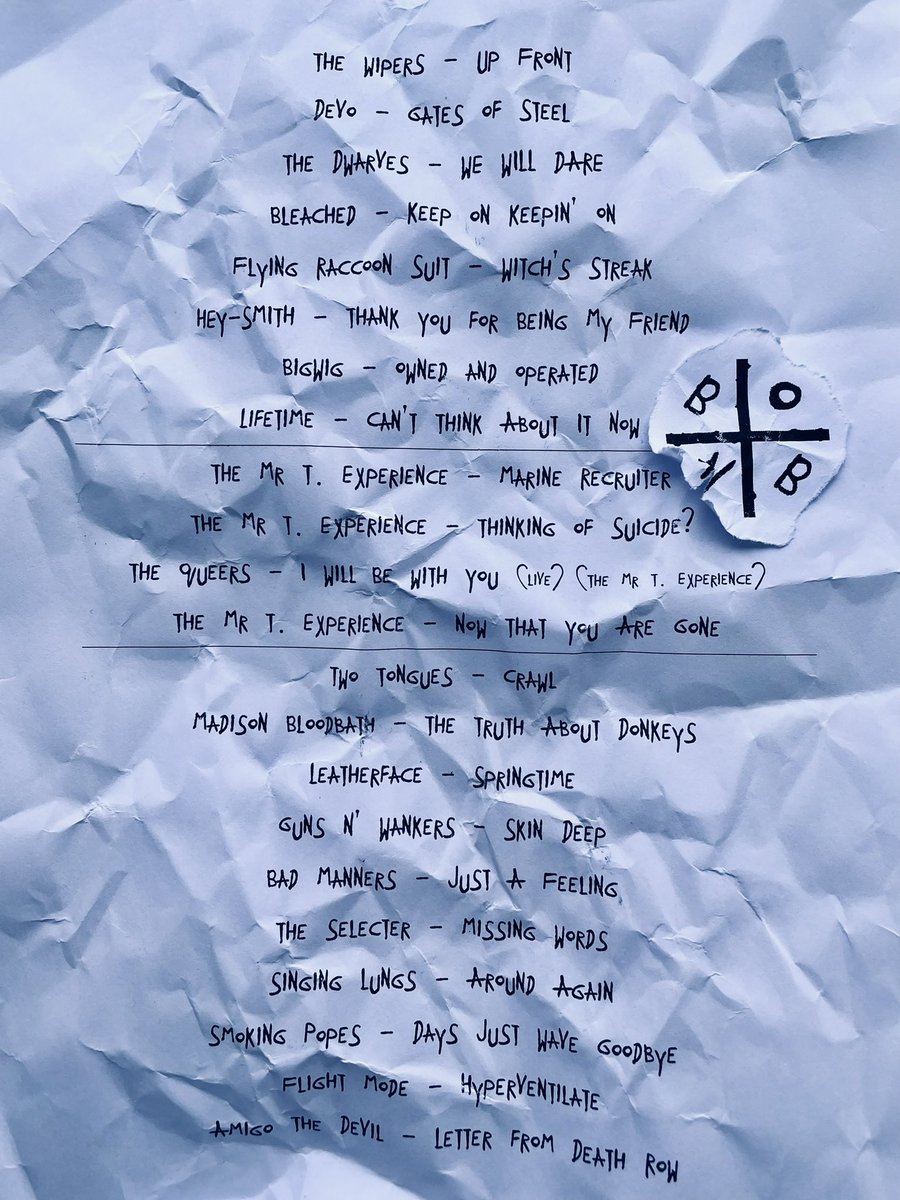 THE WIPERS – UP FRONT
DEVO – GATES OF STEEL
THE DWARVES – WE WILL DARE
BLEACHED – KEEP ON KEEPIN' ON
FLYING RACCOON SUIT – WITCH'S STREAK
HEY-SMITH – THANK YOU FOR BEING MY FRIEND
BIGWIG – OWNED AND OPERATED
LIFETIME – CAN'T THINK ABOUT IT NOW
B O
N B
THE MR T. EXPERIENCE – MARINE RECRUITER
THE MR T. EXPERIENCE – THINKING OF SUICIDE?
THE QUEERS – I WILL BE WITH YOU (LIVE) (THE MR T. EXPERIENCE)
THE MR T. EXPERIENCE – NOW THAT YOU ARE GONE
TWO TONGUES – CRAWL
MADISON BLOODBATH – THE TRUTH ABOUT DONKEYS
LEATHERFACE – SPRINGTIME
GUNS N' WANKERS – SKIN DEEP
BAD MANNERS – JUST A FEELING
THE SELECTER – MISSING WORDS
SINGING LUNGS – AROUND AGAIN
SMOKING POPES – DAYS JUST WAVE GOODBYE
FLIGHT MODE – HYPERVENTILATE
AMIGO THE DEVIL – LETTER FROM DEATH ROW